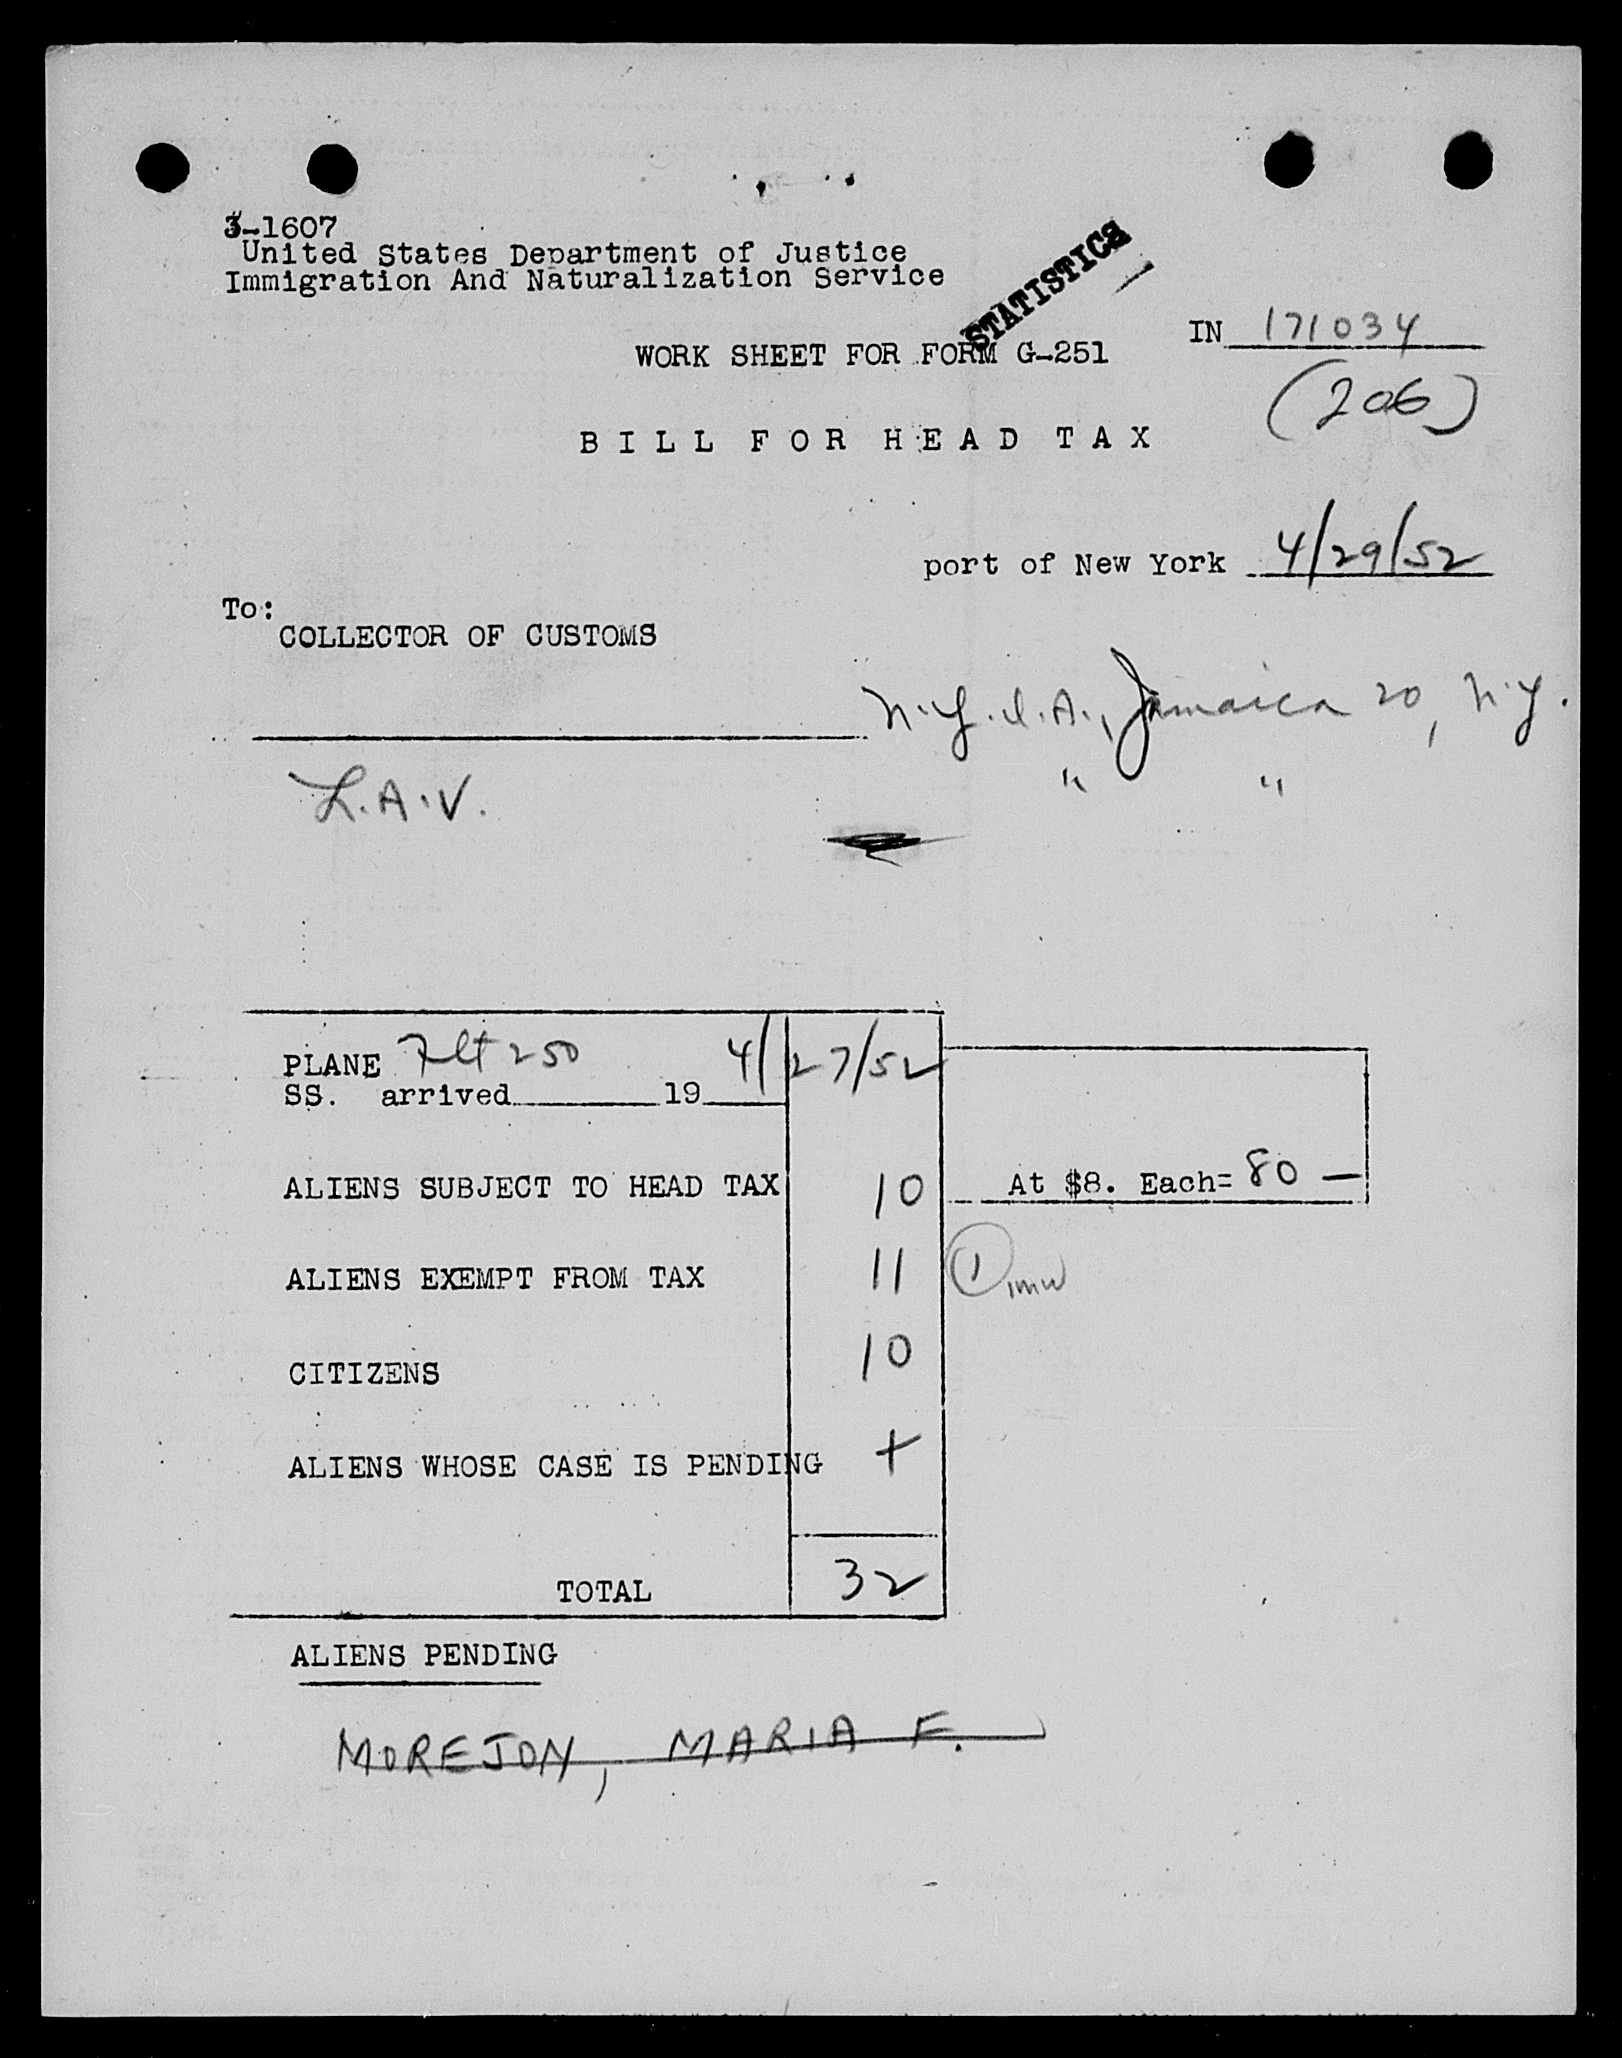 3-1607
United States Department of Justice
Immigration And Naturalization Service
STATISTICS
IN 171034
WORK SHEET FOR FORM G-251
(206)
BILL FOR HEAD TAX
port of New York 4/29/52
To:
COLLECTOR OF CUSTOMS
N.Y.I.A., Jamaica 20, N.Y.
L.A.V. " "
PLANE Flt 250 4/27/52
SS. arrived 19
ALIENS SUBJECT TO HEAD TAX 10 At $8. Each= 80 —
ALIENS EXEMPT FROM TAX 11 1
CITIZENS 10
ALIENS WHOSE CASE IS PENDING +
TOTAL 32
ALIENS PENDING
MOREJON, MARIA F.